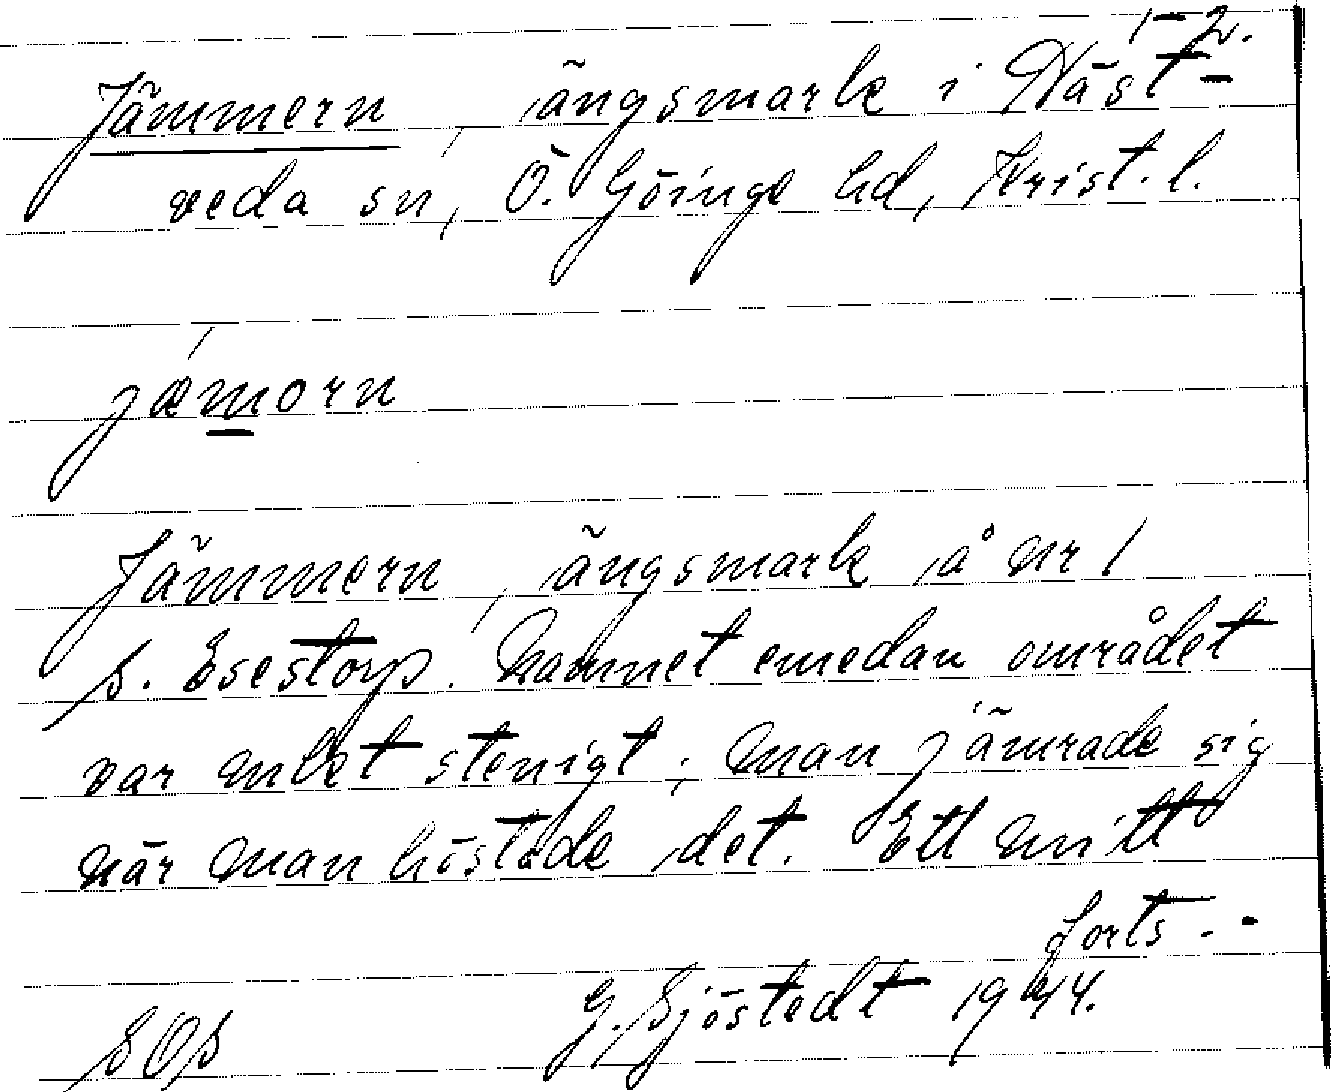 1-2.
Jämmern, ängsmark i Näst-
veda sn, Ö. Göinge hd, Krist. l.
jæmorn
Jämmern, ängsmark å nr 1
S. Esestorp. Namnet emedan området
var mket stenigt; man jämrade sig
när man höstade det. Ett mitt
forts. -
G. Sjöstedt 1944.
SOS